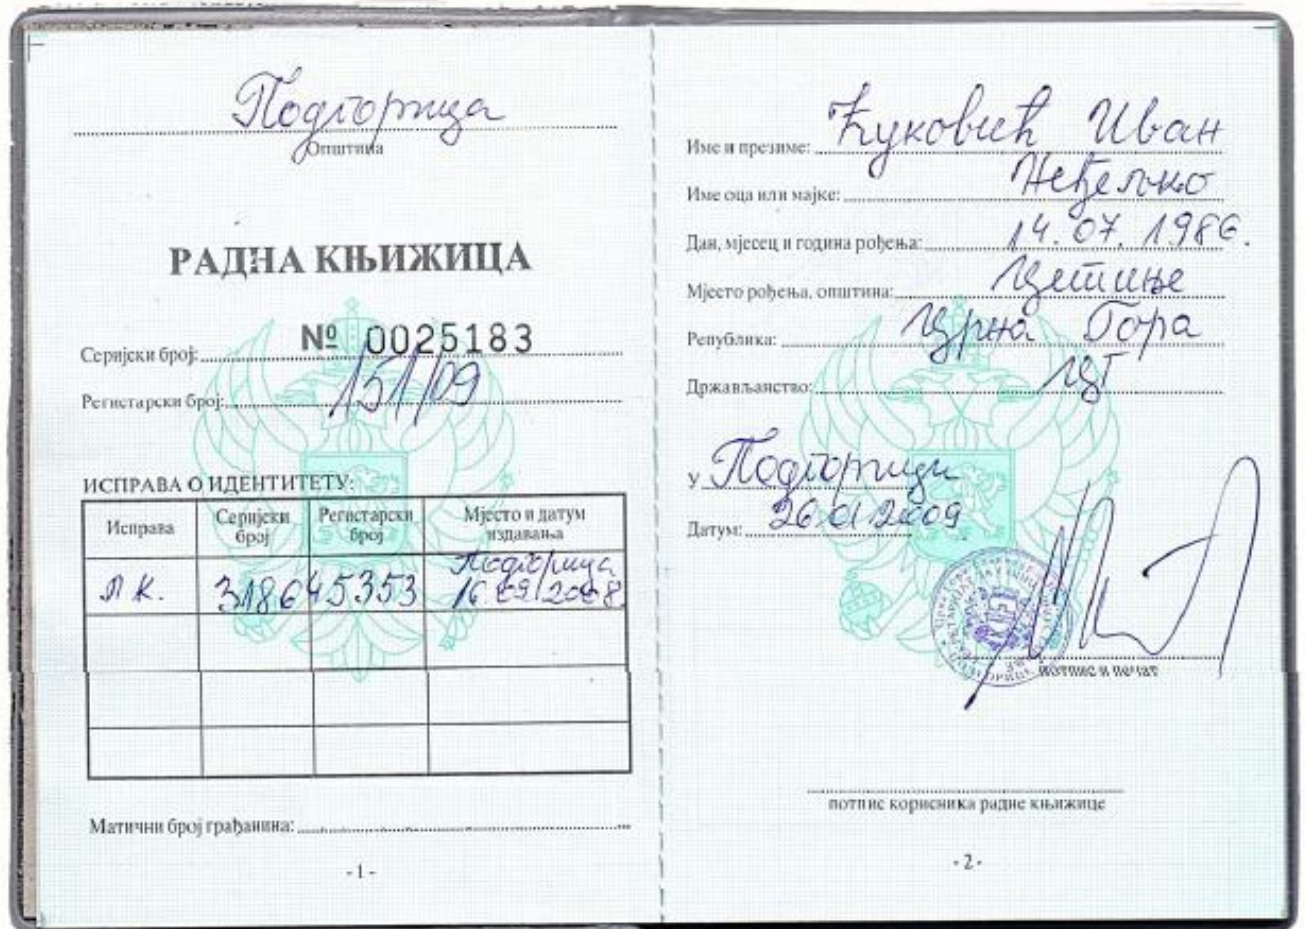 Подгорица
Општина
РАДНА КЊИЖИЦА
Серијски број: № 0025183
Регистарски број: 151/09
ИСПРАВА О ИДЕНТИТЕТУ:
Исправа Серијски број Регистарски број Мјесто и датум издавања
Л К. 318645353 Подгорица 16.09.2008.
Матични број грађанина:
- 1 -
Име и презиме: Ћуковић Иван
Име оца или мајке: Неђељко
Дан, мјесец и година рођења: 14.07.1986.
Мјесто рођења, општина: Цетиње
Република: Црна Гора
Држављанство: ЦГ
У Подгорици
Датум: 26 01 2009
потпис и печат
потпис корисника радне књижице
- 2 -